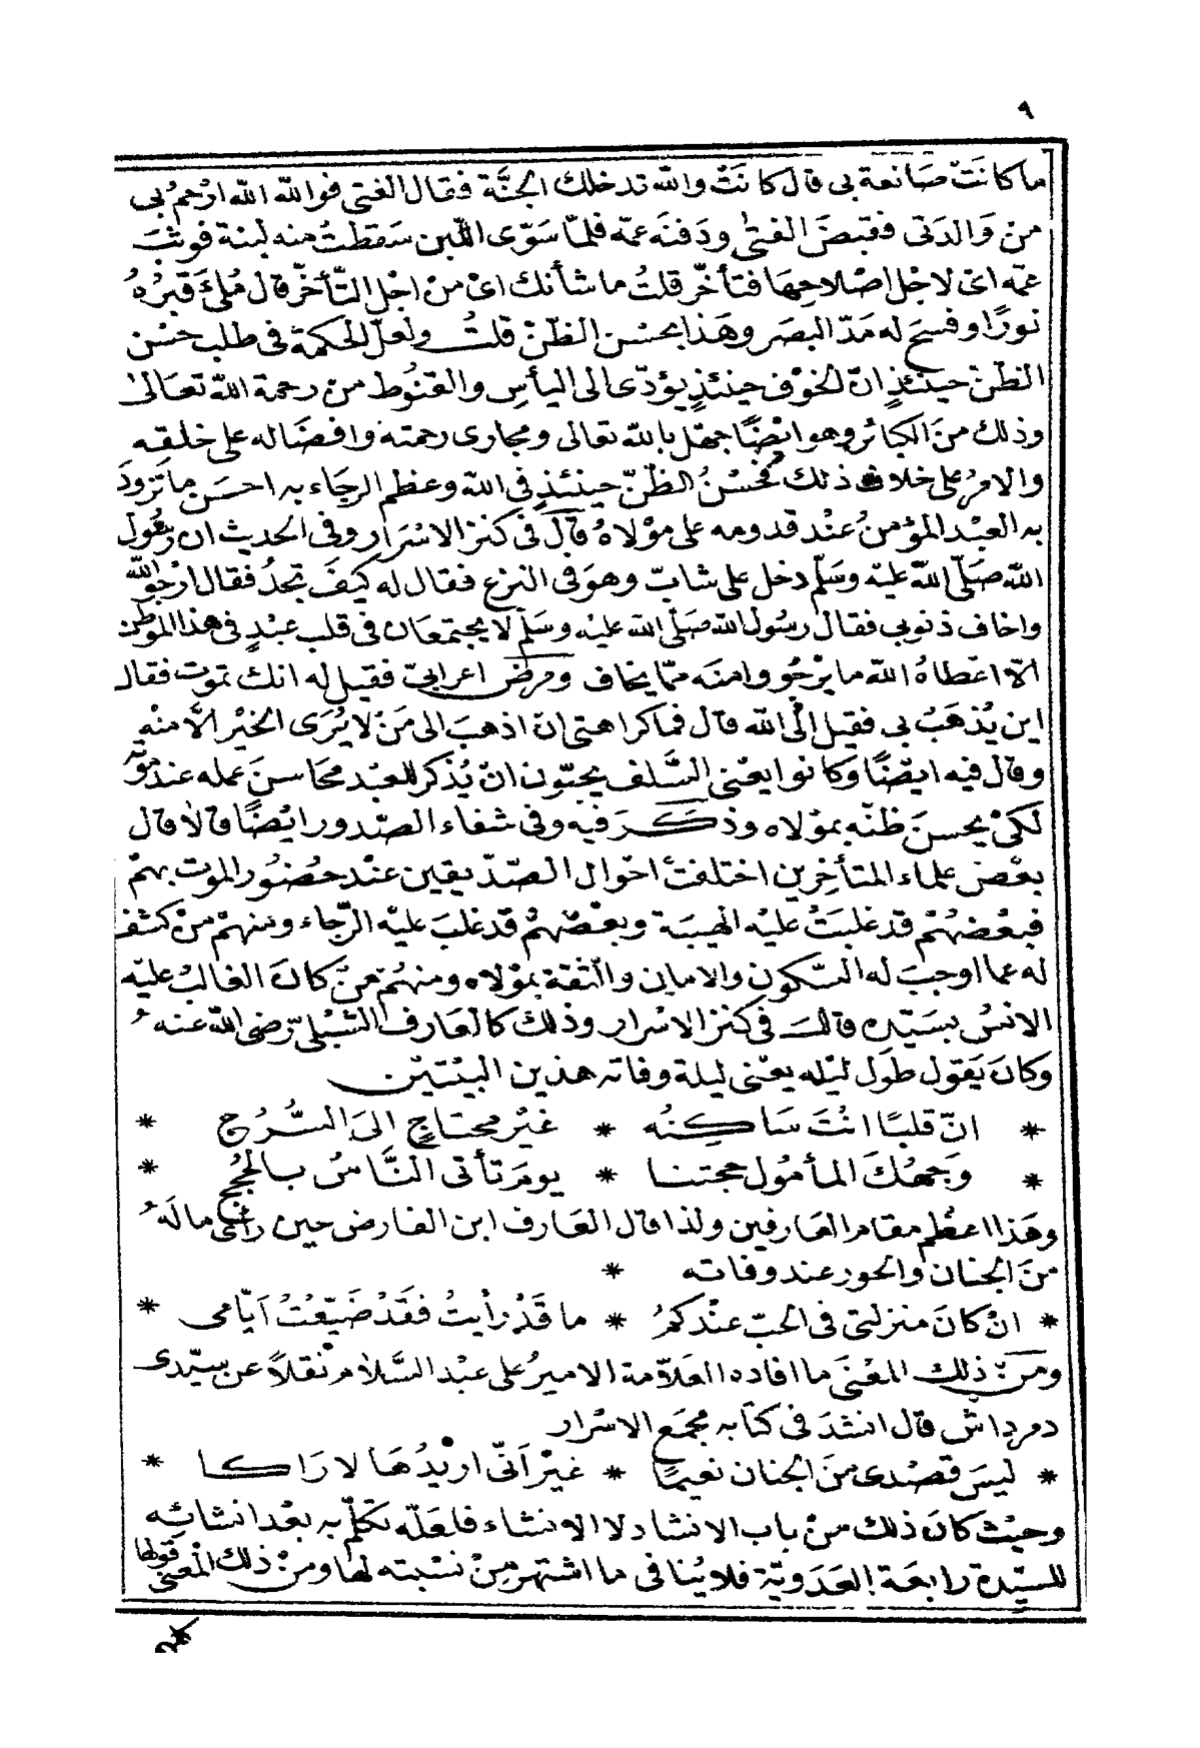 ٩
ما كانَتْ صَانعة بى قال كانَتْ والله تدخلك الجنَّة فقال الفتى فوالله الله ارْحمُ بى
منْ وَالدَتى فقبضَ الفتىٰ ودَفنَه عمّه فلمّا سَوّى اللّبن سَقطتْ منه لبنة فوثبَ
عمّه اىْ لاجْل اصْلاحِهَا فتأخّر قلتُ ما شأنك اىْ منْ اجْل التّأخّر قال مُلئَ قبْرُهُ
نورًا وفسحَ له مَدّ البصَر وهَذا بحسْن الظّنّ قلتُ ولعلّ الحكمة فى طلب حسْن
الظّنّ حينئذٍ انّ الخوْف حينئذٍ يؤدّى الى اليأسِ والقنُوط من رحمة الله تعَالىٰ
وذلك منَ الكبائر وهو ايْضًا جهْل بالله تعالى ومجارى رحمته وافضَاله على خلقه
والامْر على خلاف ذلك فحُسْنُ الظّنّ حينئذٍ فى الله وعظم الرجَاء به احسَن ما تزوّدَ
به العبْد المؤمنُ عنْد قدومه على موْلاهُ قال فى كنز الاسْرَار وفى الحديث ان رسُول
الله صَلّى اللهُ عليْه وسَلّم دخل على شابّ وهوَ فى النزع فقال له كيفَ تجدُ فقال ارْجُو الله
واخاف ذنوبى فقال رسُول الله صَلّى الله عليْه وسَلّم لا يجتمعَان فى قلب عبْدٍ فى هذا الموْطن
الّا اعْطاهُ الله ما يرْجُو وامنَه ممّا يخاف ومرضَ اعرابىّ فقيل له انك تموت فقال
اين يُذهَبُ بى فقيل الَى الله قال فما كراهتى انْ اذهبَ الى مَنْ لا يُرَى الخيْر الّا منْه
وقال فيه ايضًا وَكانوا يعْنى السَّلف يحبّون انْ يُذكر للعبْد محَاسنَ عمله عند موْته
لكىْ يحسنَ ظنّه بموْلاه وذكرَ فيه وفى شفاء الصّدور ايْضًا قالا قال
بعْض علماء المتأخِرين اختلفتْ احْوال الصّدّيقين عنْد حضُور الموت بهمْ
فبعْضهُمْ قد غلبَتْ عليْه الهيبَة وبعْضهُمْ قدْ غلبَ عليْه الرّجاء ومنهمْ منْ كشف
له عما اوجبَ له السّكون والامان والثقة بموْلاه ومنهُمْ منْ كانَ الغالبُ عليْه
الانسُ بسَيّده قال فى كنز الاسْرار وذلك كالعَارف الشبْلى رضى الله عنه
وكانَ يَقول طوَل ليْله يعْنى ليلة وفاته هذين البيْتيْن
* انّ قلبًا انْتَ سَاكِنُه * غيْر محتاجٍ الىَ السُّرُج *
* وَجهُكَ المأمُول حجتنا * يومَ تأتى النَّاسُ بالحُجج *
وهَذا اعظم مقام العَارفين ولذا قال العَارف ابن الفارض حين رأى ما لَهُ
منَ الجنان والحور عند وفاته *
* انْ كانَ منزلتى فى الحبّ عنْدكمُ * ما قَدْ رأيتُ فقَدْ ضَيّعْتُ ايّامى *
ومنْ ذلك المعْنَى ما افاده العَلاّمة الاميرُ على عبْد السَّلام نقلاً عن سيّدى
دمرداش قال انشدَ فى كتابه مجمَع الاسْرار
* ليسَ قصْدى منَ الجنان نعيمًا * غيْر انّى اريْدُهَا لارَاكا *
وحيْث كانَ ذلك منْ باب الانشاد لا الانشاء فلعَلّه تكلّم به بعْد انشائه
للسيّدة رابعَة العَدَويّة فلا يُنافى ما اشتهر منْ نسْبته لها ومنْ ذلك المْعنى قولها